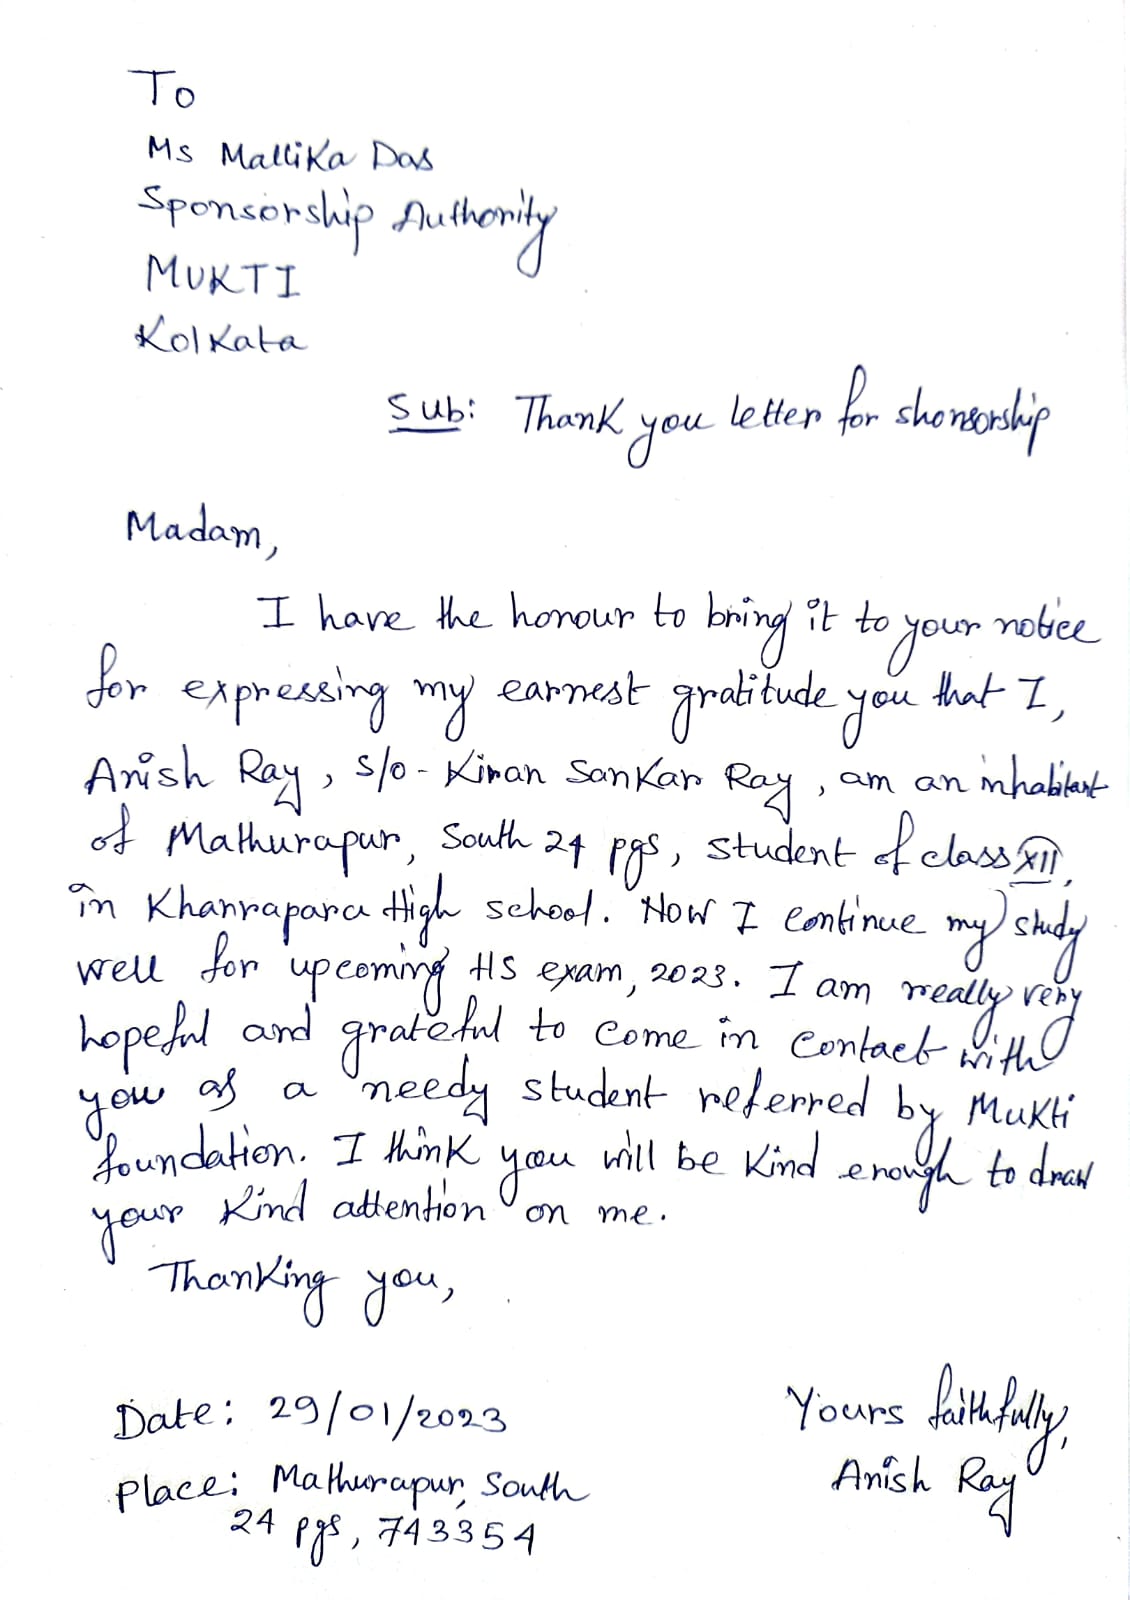 To
Ms Mallika Das
Sponsorship Authority
MUKTI
Kolkata
Sub: Thank you letter for shonsorship
Madam,
I have the honour to bring it to your notice
for expressing my earnest gratitude you that I,
Anish Ray, s/o - Kiran Sankar Ray, am an inhabitant
of Mathurapur, South 24 pgs, student of class XII,
in Khanrapara High school. Now I continue my study
well for upcoming HS exam, 2023. I am really very
hopeful and grateful to come in contact with
you as a needy student referred by Mukti
foundation. I think you will be kind enough to draw
your kind attention on me.
Thanking you,
Date: 29/01/2023
Place: Mathurapur, South
24 pgs, 743354
Yours faithfully,
Anish Ray